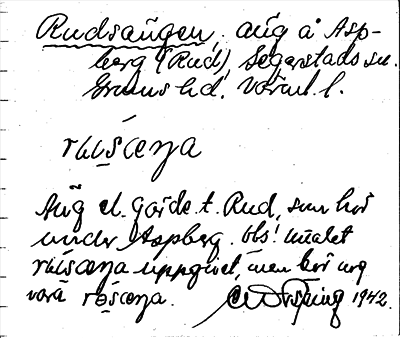 Rudsängen, äng å Asp-
berg (Rud), Segerstads sn.
Grums hd. Värml. l.
rʉ̀sæŋa
Äng el. gärde t. Rud, som hör
under Aspberg. Obs! uttalet
rʉ̀sæŋa uppgivet, men bör nog
vara sæŋa.
1942.